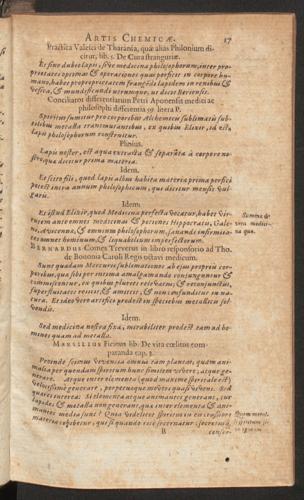 ARTIS CHEMICÆ. 17
Practica Valesci de Tharanta, quæ alias Philonium di-
citur, lib. 5. De Cura stranguriæ.
Et sine dubio Lapis, siue medicina philosophorum, inter pro-
prietates optimas & operationes quas perficit in corpore hu-
mano, habet proprietatem frangēdi lapidem in renibus &
vesica, & mundificandi utrumque, ut dicit Beriensis.
Conciliator differentiarum Petri Aponensis medici ac
philosophi differentia 59. litera P.
Spiritus sumitur pro corporibus Alchemicis sublimatis sub-
tilibus metalla transmutantibus, ex quibus Elixir, id est
Lapis philosophorum construitur.
Plinius.
Lapis noster, est aqua extracta & separata à corpore no-
stro, quæ dicitur prima materia.
Idem.
Et scito fili, quod lapis albus habita materia prima perfici
potest intra annum philosophicum, qui dicitur mensis vul-
garis.
Idem.
Et istud Elixir, quod Medicina perfecta vocatur, habet vir-
tutem ante omnes medicinas & potiones Hippocratis, Gale-
ni, Avicennæ, & omnium philosophorum, sanandi infirmita-
tes omnes hominum, & lepra bilium imperfectorum.
Summa &
vera medici-
na quæ.
BERNARDUS Comes Treverus in libro responsorio ad Tho.
de Bononia Caroli Regis octavi medicum.
Sunt quædam Mercurii sublimationes ab ejus propriis cor-
poribus, quæ sibi per intima amalgamando conjunguntur &
commiscentur, ex quibus pluries relevatus, & reconjunctus,
superfluitates reiicit, & amittit, & non confunditur in na-
tura. Et ideò verè artifici prodest in speciebus metallicis sol-
vendis.
Idem.
Sed medicina nostra fixa, mirabiliter prodest tam ad ho-
mines quam ad metalla.
MARSILIUS Ficinus lib. De vita cœlitus com-
paranda cap. 3.
Proinde scimus viventia omnia tam plantas, quàm anima-
lia per quendam spiritum hunc similem vivere, atque ge-
nerare. atque inter elementa (quod maxime spiritale est)
velocissimè generare, perpetuoque moveri quasi vivens. Sed
quæres interea: Si elementa atque animantes generant, cur
lapides & metalla non generant, quæ inter elementa & ani-
mantes media sunt? Quia videlicet spiritus in eis crassiore
materia cohibetur, qui si quando ritè secernatur, secretusque
B conser-